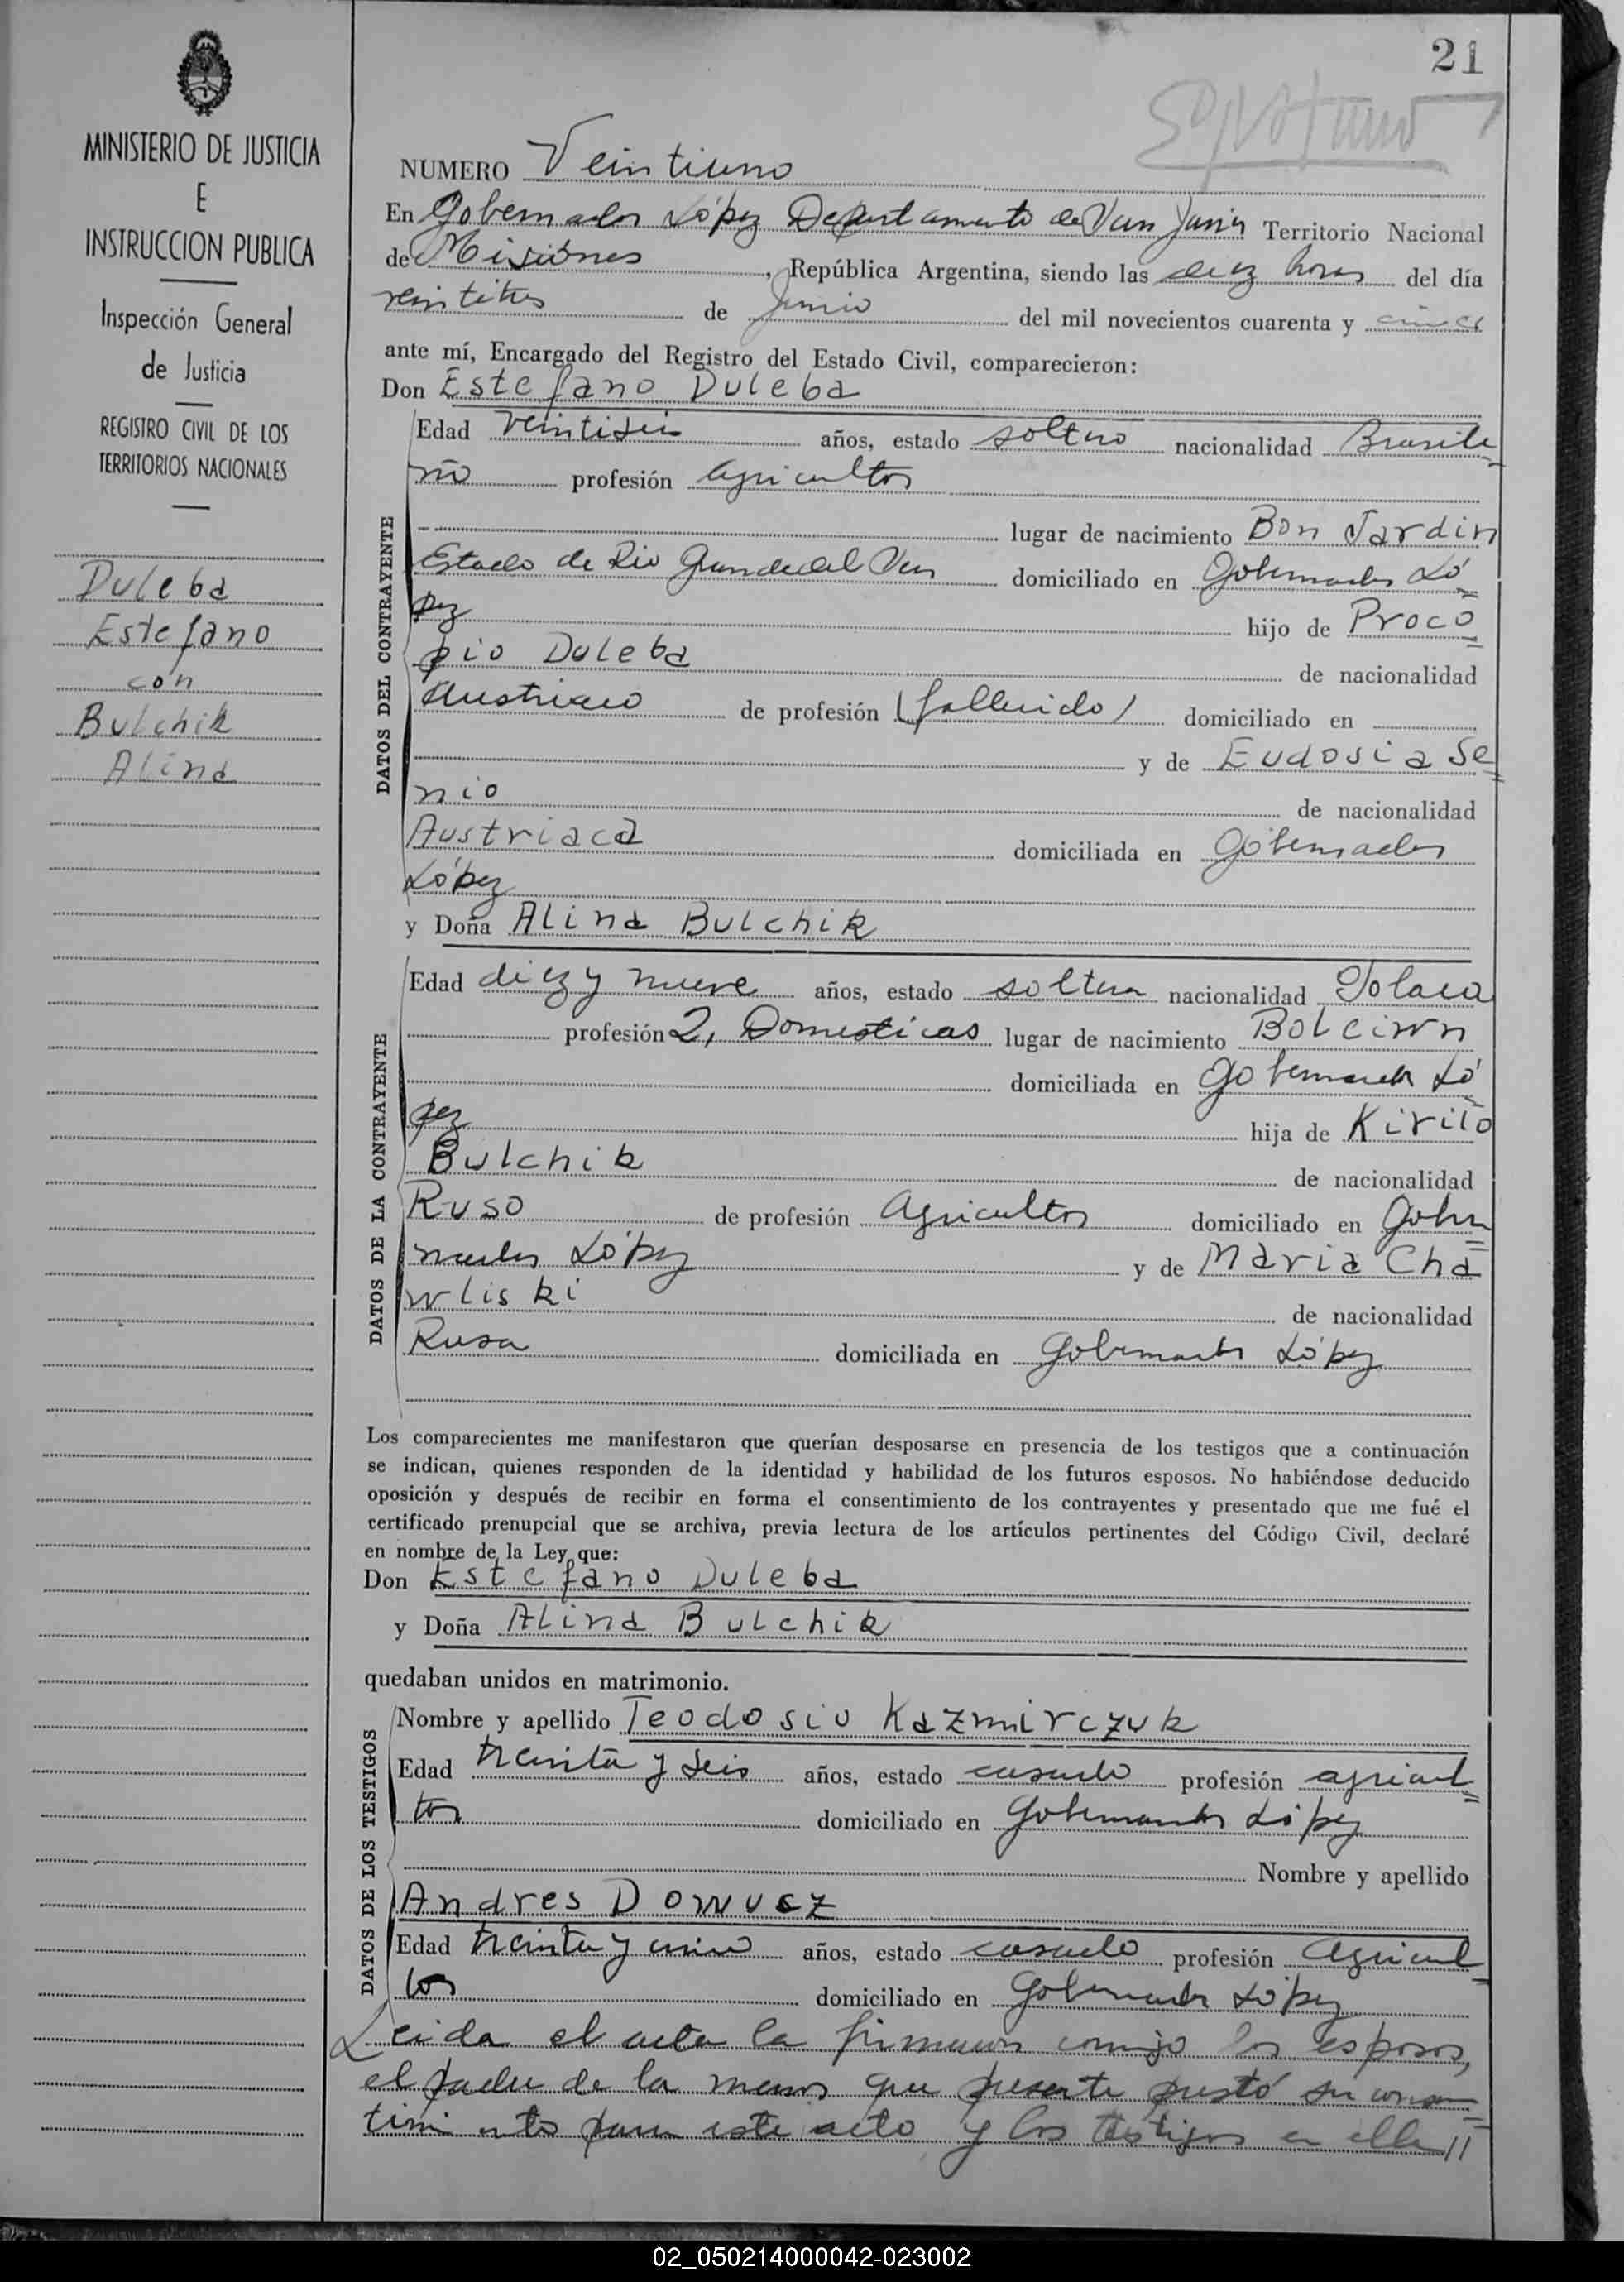 21
MINISTERIO DE JUSTICIA
E
INSTRUCCION PUBLICA
Inspección General
de Justicia
REGISTRO CIVIL DE LOS
TERRITORIOS NACIONALES
Duleba
Estefano
con
Bulchik
Alina
NUMERO Veintiuno
En Gobernador López Departamento de San Javier Territorio Nacional
de Misiones, República Argentina, siendo las diez horas del día
veintitres de Junio del mil novecientos cuarenta y cinco
ante mí, Encargado del Registro del Estado Civil, comparecieron:
Don Estefano Duleba
DATOS DEL CONTRAYENTE
Edad veintiseis años, estado soltero nacionalidad Brasile-
ño profesión agricultor
lugar de nacimiento Bon Jardin
Estado de Rio Grande del Sur domiciliado en Gobernador Ló=
pez hijo de Proco=
pio Duleba de nacionalidad
Austriaco de profesión (fallecido) domiciliado en
y de Eudosia Se=
nio de nacionalidad
Austriaca domiciliada en Gobernador
López
y Doña Alina Bulchik
DATOS DE LA CONTRAYENTE
Edad diez y nueve años, estado soltera nacionalidad Polaca
profesión Q. Domesticos lugar de nacimiento Bolciwn
domiciliada en Gobernador Ló=
pez hija de Kirilo
Bulchik de nacionalidad
Ruso de profesión Agricultor domiciliado en Gober=
nador López y de Maria Cha=
wliski de nacionalidad
Rusa domiciliada en Gobernador López
Los comparecientes me manifestaron que querían desposarse en presencia de los testigos que a continuación
se indican, quienes responden de la identidad y habilidad de los futuros esposos. No habiéndose deducido
oposición y después de recibir en forma el consentimiento de los contrayentes y presentado que me fué el
certificado prenupcial que se archiva, previa lectura de los artículos pertinentes del Código Civil, declaré
en nombre de la Ley que:
Don Estefano Duleba
y Doña Alina Bulchik
quedaban unidos en matrimonio.
DATOS DE LOS TESTIGOS
Nombre y apellido Teodosio Kazmirczuk
Edad treinta y seis años, estado casado profesión agricul=
tor domiciliado en Gobernador López
Nombre y apellido
Andres Domusz
Edad treinta y cinco años, estado casado profesión Agricul=
tor domiciliado en Gobernador López
Leida el acta la firmaron conmigo los esposos,
el padre de la menor que presente prestó su consen=
timiento para este acto y los testigos en ella //
02_050214000042-023002